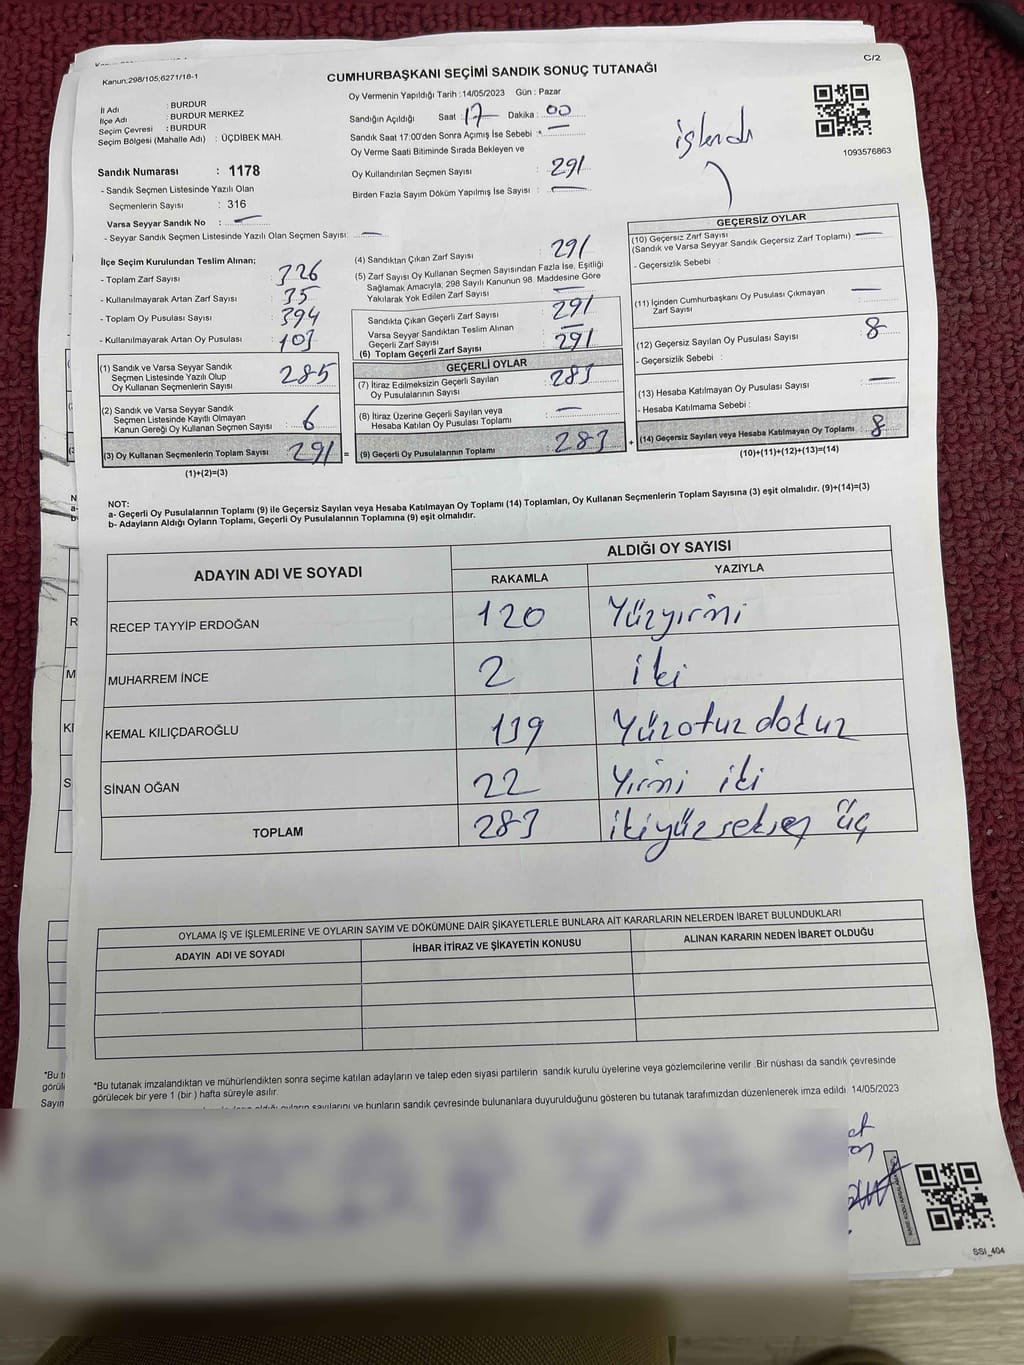 C/2
Kanun:298/105,6271/18-1
CUMHURBAŞKANI SEÇİMİ SANDIK SONUÇ TUTANAĞI
İl Adı : BURDUR
İlçe Adı : BURDUR MERKEZ
Seçim Çevresi : BURDUR
Seçim Bölgesi (Mahalle Adı) : ÜÇDİBEK MAH.
Sandık Numarası : 1178
- Sandık Seçmen Listesinde Yazılı Olan
Seçmenlerin Sayısı : 316
Varsa Seyyar Sandık No : —
- Seyyar Sandık Seçmen Listesinde Yazılı Olan Seçmen Sayısı: —
Oy Vermenin Yapıldığı Tarih : 14/05/2023 Gün : Pazar
Sandığın Açıldığı Saat : 17 Dakika : 00
Sandık Saat 17:00'den Sonra Açımış İse Sebebi : —
Oy Verme Saati Bitiminde Sırada Bekleyen ve
Oy Kullandırılan Seçmen Sayısı : 291
Birden Fazla Sayım Döküm Yapılmış İse Sayısı : —
işlendi
1093576863
İlçe Seçim Kurulundan Teslim Alınan;
- Toplam Zarf Sayısı : 326
- Kullanılmayarak Artan Zarf Sayısı : 35
- Toplam Oy Pusulası Sayısı : 394
- Kullanılmayarak Artan Oy Pusulası : 103
(1) Sandık ve Varsa Seyyar Sandık
Seçmen Listesinde Yazılı Olup
Oy Kullanan Seçmenlerin Sayısı : 285
(2) Sandık ve Varsa Seyyar Sandık
Seçmen Listesinde Kayıtlı Olmayan
Kanun Gereği Oy Kullanan Seçmen Sayısı : 6
(3) Oy Kullanan Seçmenlerin Toplam Sayısı : 291 =
(1)+(2)=(3)
(4) Sandıktan Çıkan Zarf Sayısı : 291
(5) Zarf Sayısı Oy Kullanan Seçmen Sayısından Fazla İse, Eşitliği
Sağlamak Amacıyla, 298 Sayılı Kanunun 98. Maddesine Göre
Yakılarak Yok Edilen Zarf Sayısı : —
Sandıkta Çıkan Geçerli Zarf Sayısı : 291
Varsa Seyyar Sandıktan Teslim Alınan
Geçerli Zarf Sayısı : —
(6) Toplam Geçerli Zarf Sayısı : 291
GEÇERLİ OYLAR
(7) İtiraz Edilmeksizin Geçerli Sayılan
Oy Pusulalarının Sayısı : 283
(8) İtiraz Üzerine Geçerli Sayılan veya
Hesaba Katılan Oy Pusulası Toplamı : —
(9) Geçerli Oy Pusulalarının Toplamı : 283 +
GEÇERSİZ OYLAR
(10) Geçersiz Zarf Sayısı
(Sandık ve Varsa Seyyar Sandık Geçersiz Zarf Toplamı) : —
- Geçersizlik Sebebi :
(11) İçinden Cumhurbaşkanı Oy Pusulası Çıkmayan
Zarf Sayısı : —
(12) Geçersiz Sayılan Oy Pusulası Sayısı : 8
- Geçersizlik Sebebi :
(13) Hesaba Katılmayan Oy Pusulası Sayısı : —
- Hesaba Katılmama Sebebi :
(14) Geçersiz Sayılan veya Hesaba Katılmayan Oy Toplamı : 8
(10)+(11)+(12)+(13)=(14)
NOT:
a- Geçerli Oy Pusulalarının Toplamı (9) ile Geçersiz Sayılan veya Hesaba Katılmayan Oy Toplamı (14) Toplamları, Oy Kullanan Seçmenlerin Toplam Sayısına (3) eşit olmalıdır. (9)+(14)=(3)
b- Adayların Aldığı Oyların Toplamı, Geçerli Oy Pusulalarının Toplamına (9) eşit olmalıdır.
ADAYIN ADI VE SOYADI ALDIĞI OY SAYISI
RAKAMLA YAZIYLA
RECEP TAYYİP ERDOĞAN 120 Yüzyirmi
MUHARREM İNCE 2 iki
KEMAL KILIÇDAROĞLU 139 Yüzotuz dokuz
SİNAN OĞAN 22 Yirmi iki
TOPLAM 283 ikiyüz seksen üç
OYLAMA İŞ VE İŞLEMLERİNE VE OYLARIN SAYIM VE DÖKÜMÜNE DAİR ŞİKAYETLERLE BUNLARA AİT KARARLARIN NELERDEN İBARET BULUNDUKLARI
ADAYIN ADI VE SOYADI İHBAR İTİRAZ VE ŞİKAYETİN KONUSU ALINAN KARARIN NEDEN İBARET OLDUĞU
*Bu tutanak imzalandıktan ve mühürlendikten sonra seçime katılan adayların ve talep eden siyasi partilerin sandık kurulu üyelerine veya gözlemcilerine verilir. Bir nüshası da sandık çevresinde
görülecek bir yere 1 (bir) hafta süreyle asılır.
oyların sayılarını ve bunların sandık çevresinde bulunanlara duyurulduğunu gösteren bu tutanak tarafımızdan düzenlenerek imza edildi. 14/05/2023
SSI_404